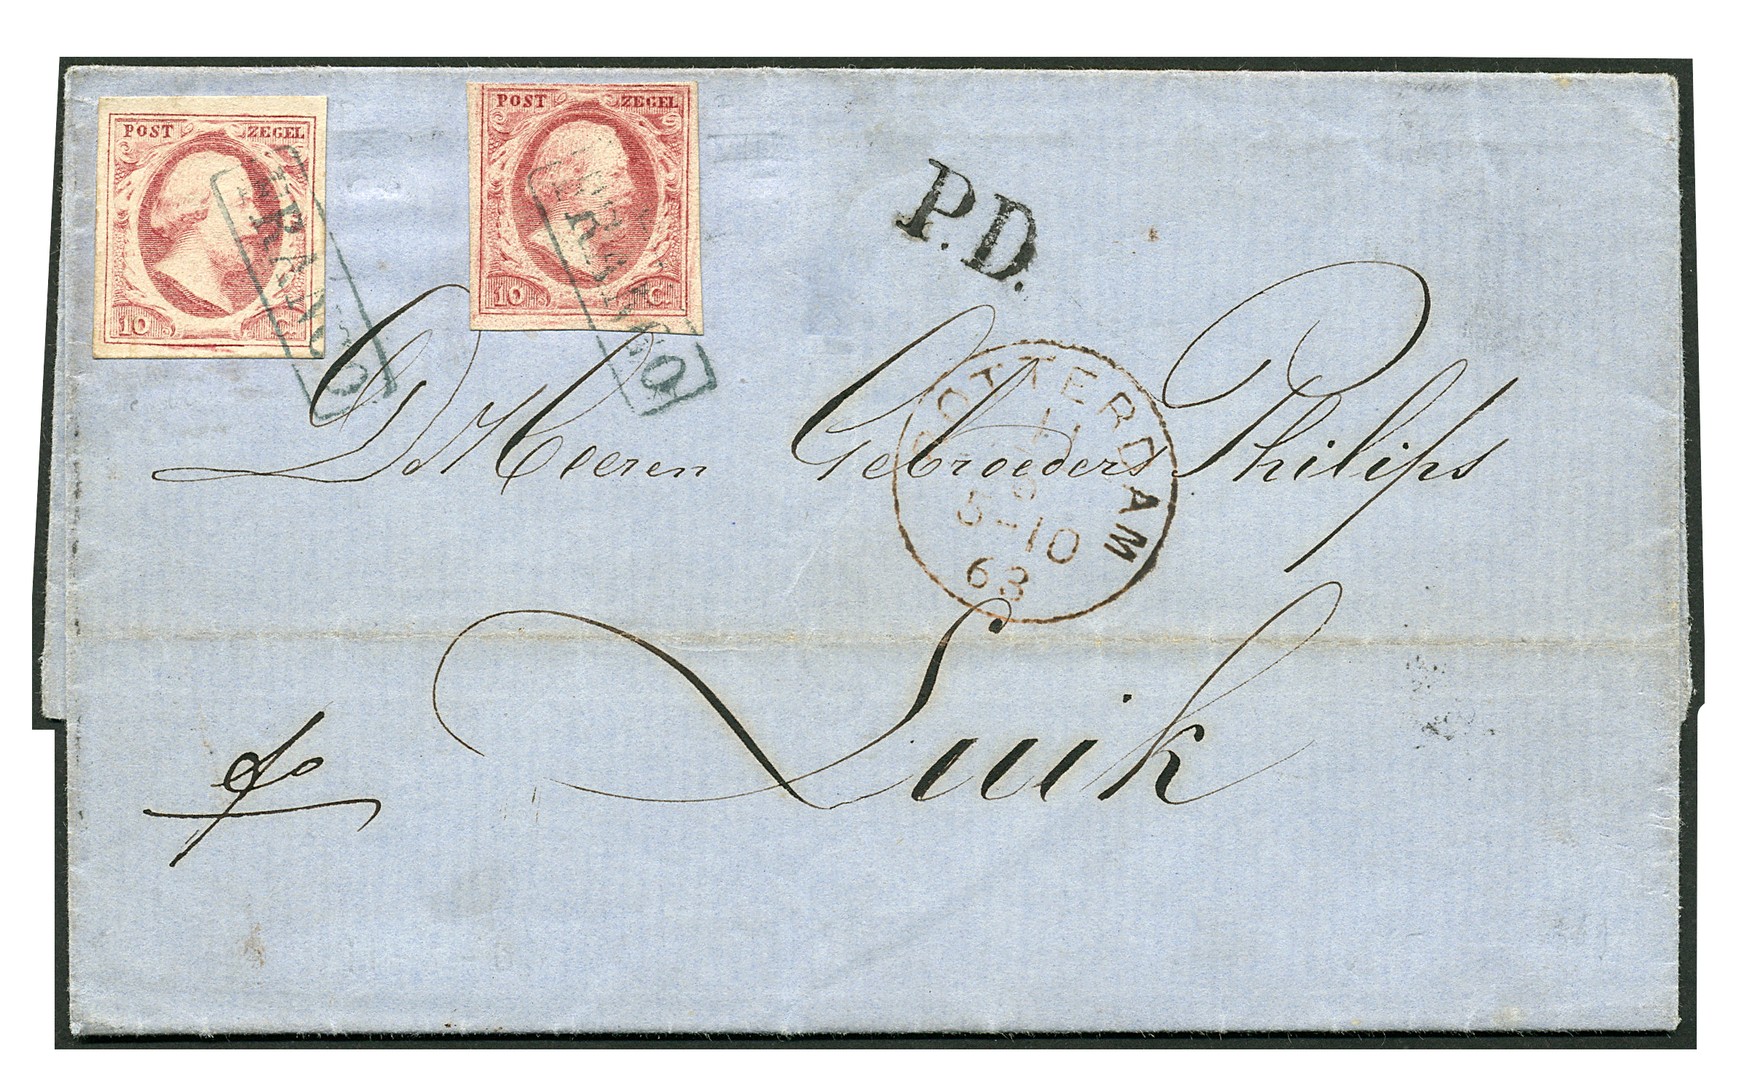 POST ZEGEL
10 C.
POST ZEGEL
10 C.
FRANCO
FRANCO
P.D.
De Heeren Gebroeders Philips
ROTTERDAM
5-10
63
Luik